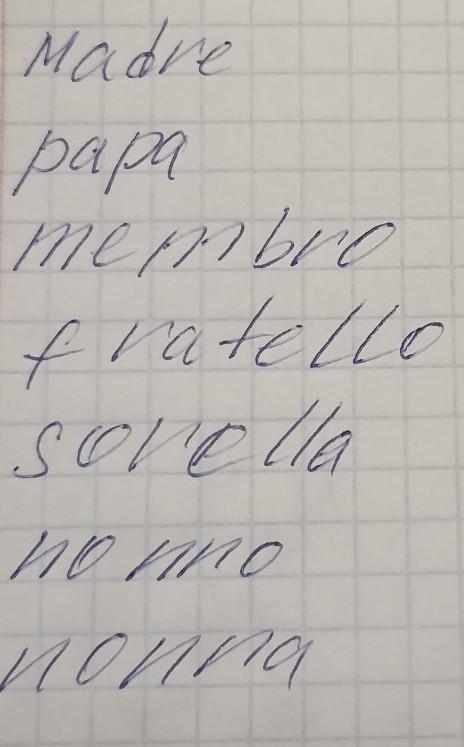 Madre
papa
membro
fratello
sorella
nonno
nonna